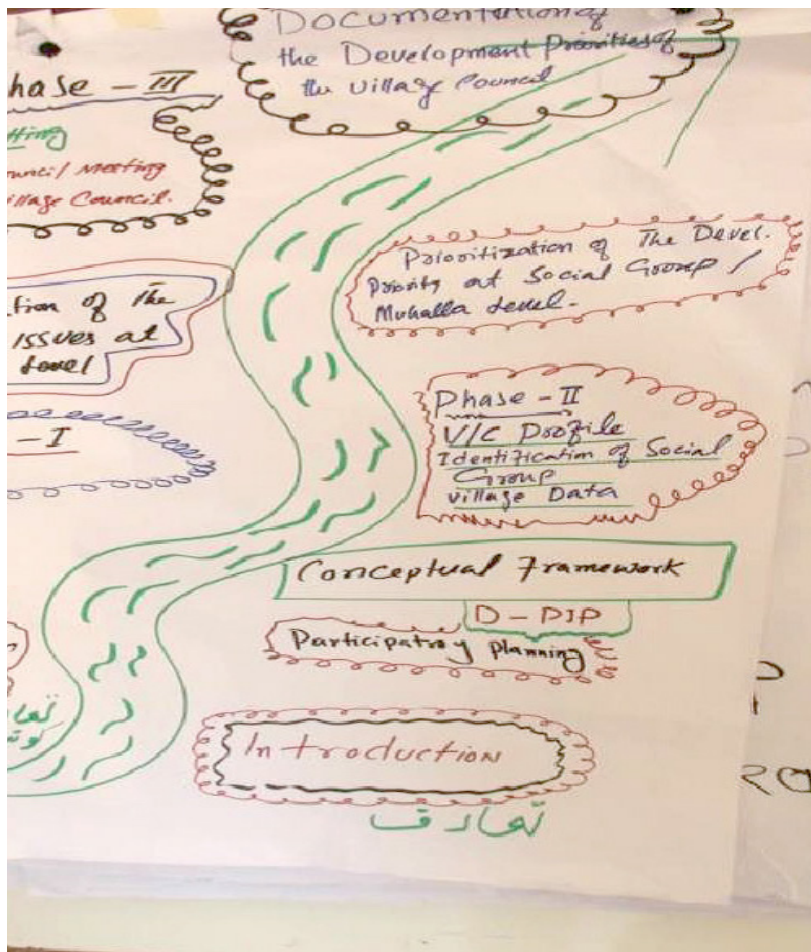 Documentation of
the Development Priorities of
the village Council
hase - III
tting
uncil Meeting
illage Council.
Prioritization of The Devel.
Priority at Social Group /
Muhalla Level.
tion of The
issues at
Level
Phase - II
V/C Profile
Identification of Social
Group
village Data
- I
Conceptual Framework
D - DIP
Participatroy planning
Introduction
تعارف